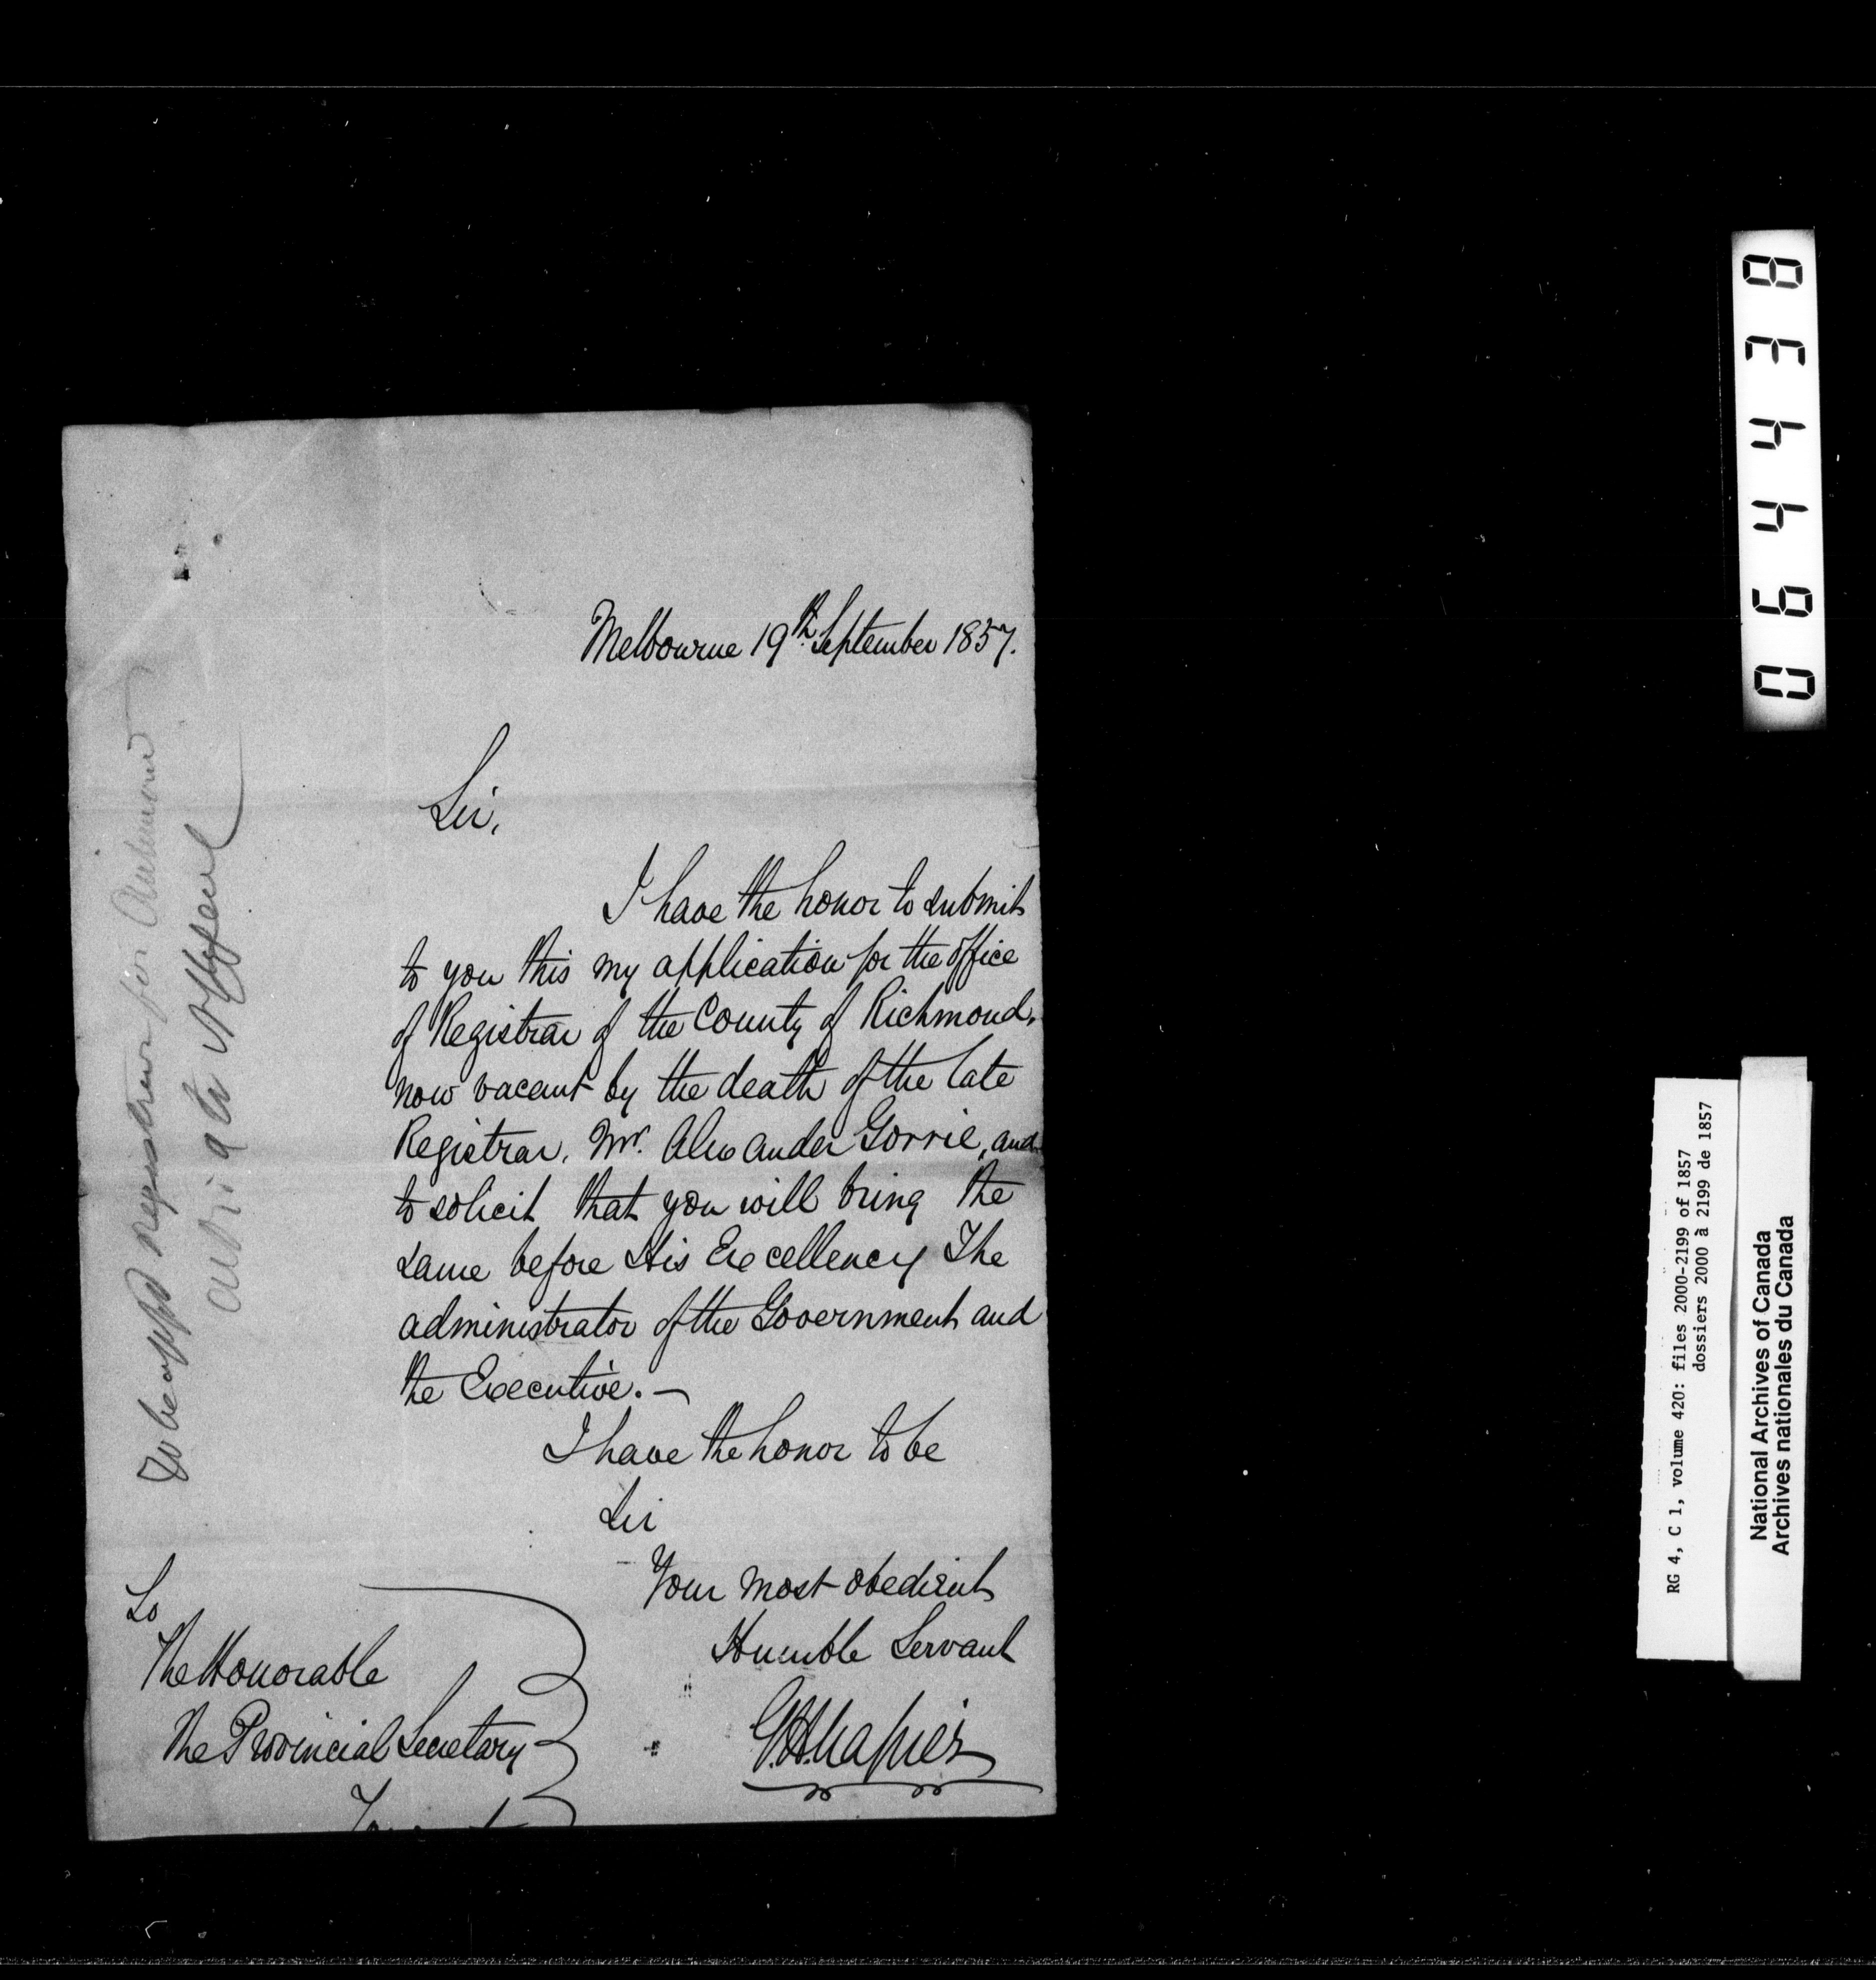 Melbourne 19th September 1857.
Sir,
I have the honor to submit
to you this my application for the office
of Registrar of the County of Richmond,
now vacant by the death of the late
Registrar, Mr. Alexander Gorrie, and
to solicit that you will bring the
same before His Excellency The
administrator of the Government and
the Executive. —
I have the honor to be
Sir
Your most obedient
Humble Servant
G.H. Napier
To
The Honorable
The Provincial Secretary
To be appd Registrar for
064438
RG 4, C 1, volume 420: files 2000-2199 of 1857
dossiers 2000 à 2199 de 1857
National Archives of Canada
Archives nationales du Canada